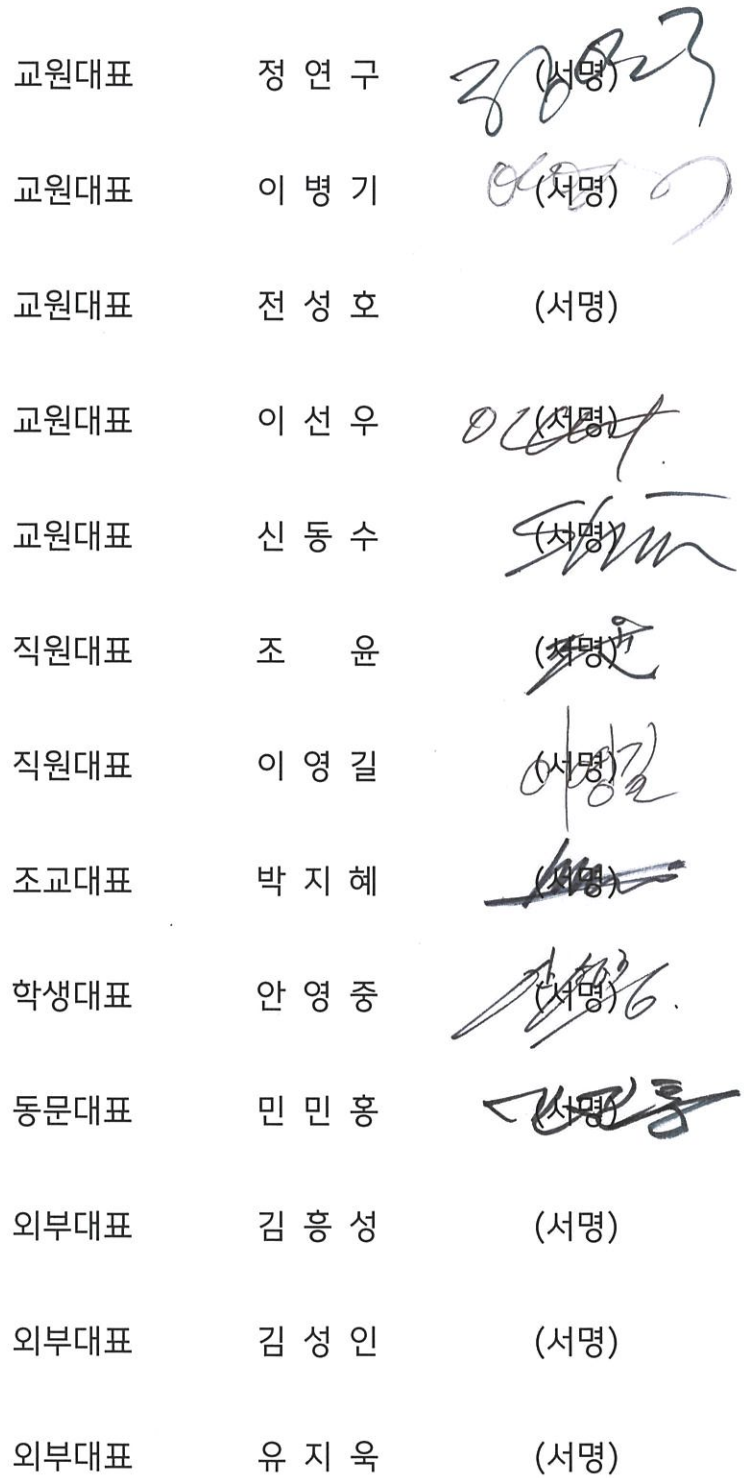 교원대표 정 연 구 (서명)
교원대표 이 병 기 (서명)
교원대표 전 성 호 (서명)
교원대표 이 선 우 (서명)
교원대표 신 동 수 (서명)
직원대표 조 윤 (서명)
직원대표 이 영 길 (서명)
조교대표 박 지 혜 (서명)
학생대표 안 영 중 (서명)
동문대표 민 민 홍 (서명)
외부대표 김 흥 성 (서명)
외부대표 김 성 인 (서명)
외부대표 유 지 욱 (서명)